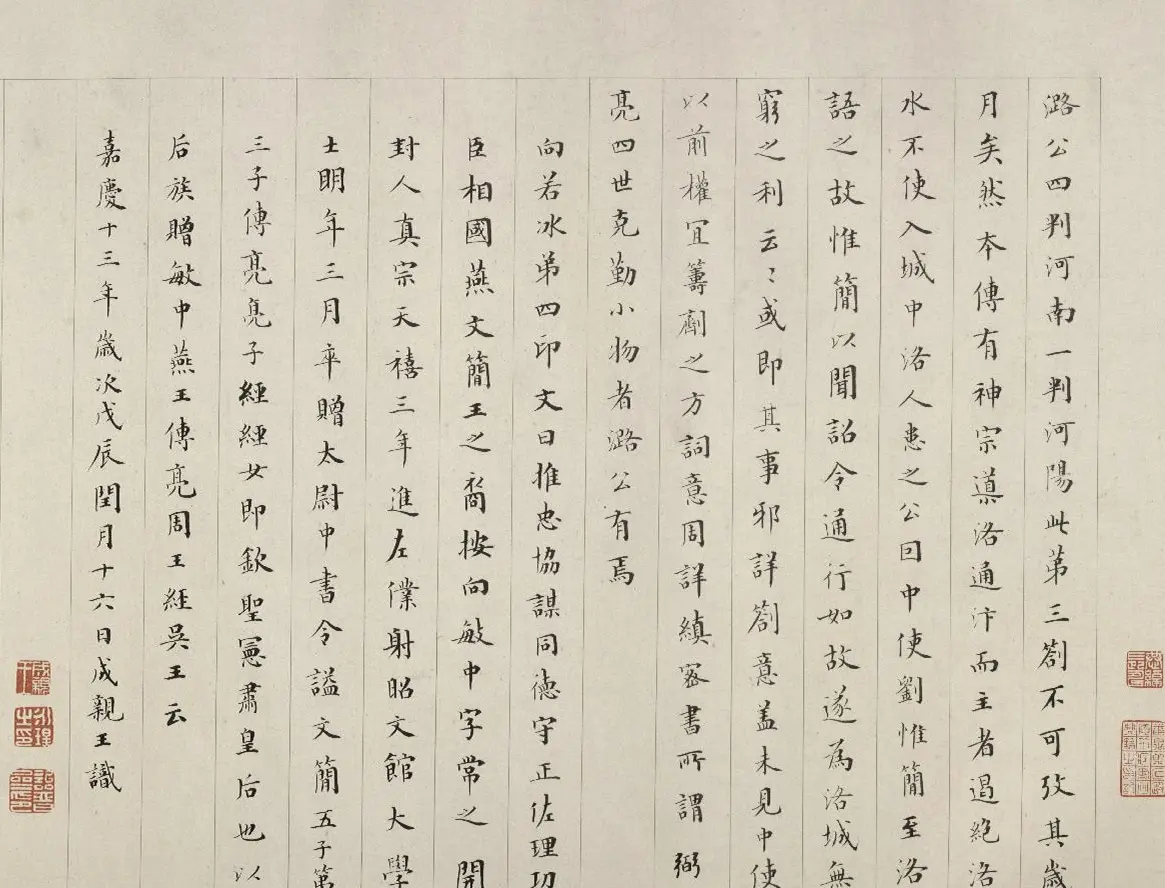 潞公四判河南一判河陽此第三劄不可攷其歲
月矣然本傳有神宗導洛通汴而主者遏絶洛
水不使入城中洛人患之公回中使劉惟簡至洛
語之故惟簡以聞詔令通行如故遂為洛城無
窮之利云〻或即其事邪詳劄意盖未見中使
以前權宜籌劑之方詞意周詳縝密書所謂弼
亮四世克勤小物者潞公有焉
向若冰弟四印文曰推忠協謀同德守正佐理功
臣相國燕文簡王之裔按向敏中字常之開
封人真宗天禧三年進左僕射昭文館大學
士明年三月卒贈太尉中書令謚文簡五子第
三子傳亮亮子經經女即欽聖憲肅皇后也以
后族贈敏中燕王傳亮周王經吳王云
嘉慶十三年歲次戊辰閏月十六日成親王識